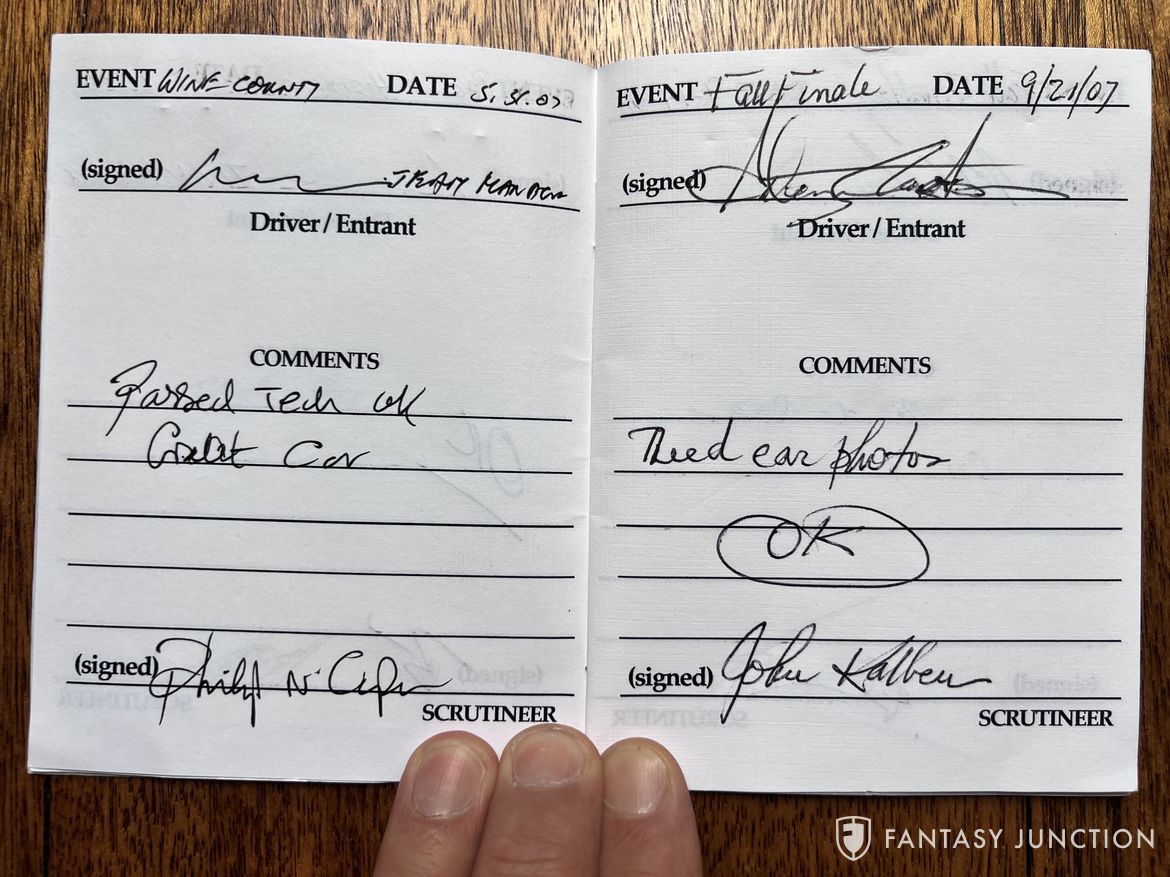 EVENT WINE COUNTY DATE 5.31.07
(signed) TEAM MANAGER
Driver / Entrant
COMMENTS
Passed Tech ok
Car
(signed)
SCRUTINEER
EVENT Fall Finale DATE 9/21/07
(signed)
Driver / Entrant
COMMENTS
Need car photos
OK
(signed) John
SCRUTINEER
FANTASY JUNCTION